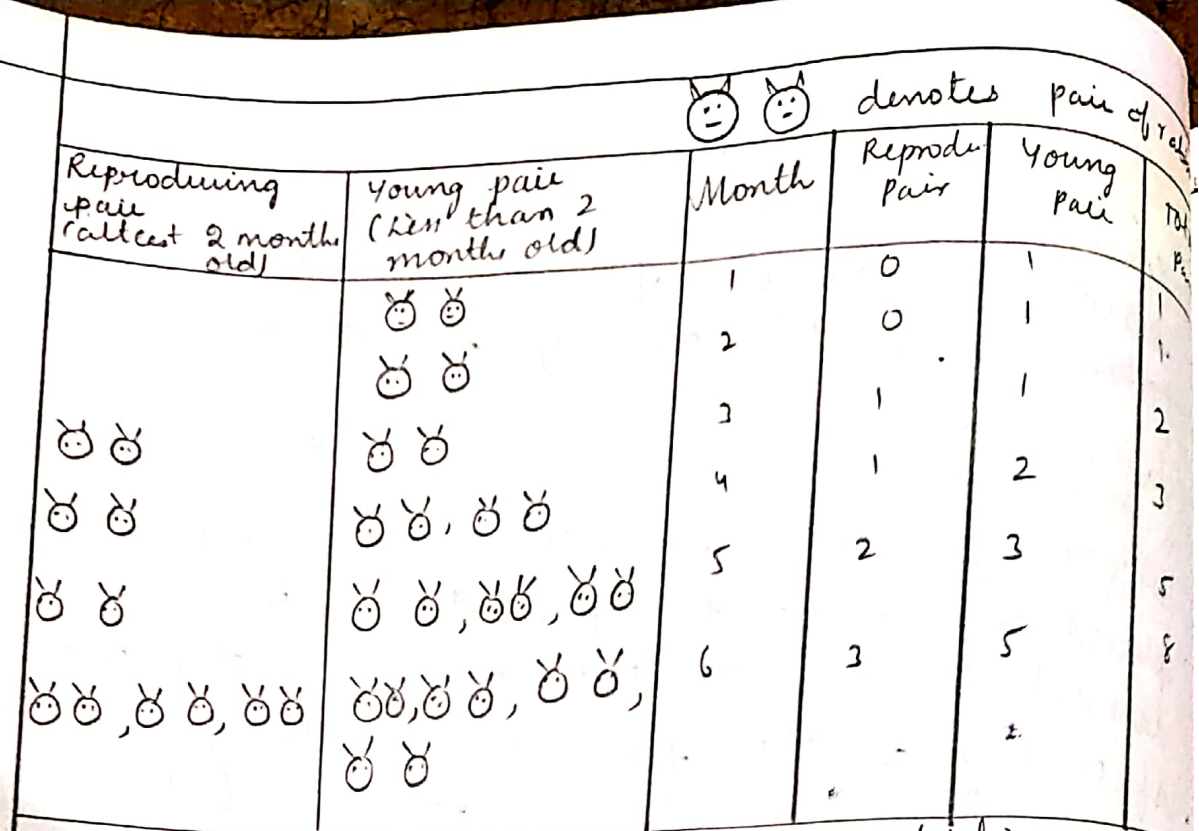 denotes pair of
Reproducing
pair
(atleast 2 months
old)
Young pair
(Less than 2
months old)
Month
Reprodu
Pair
Young
Pair
1 0 1 1
2 0 1 1
3 1 1 2
4 1 2 3
5 2 3 5
6 3 5 8